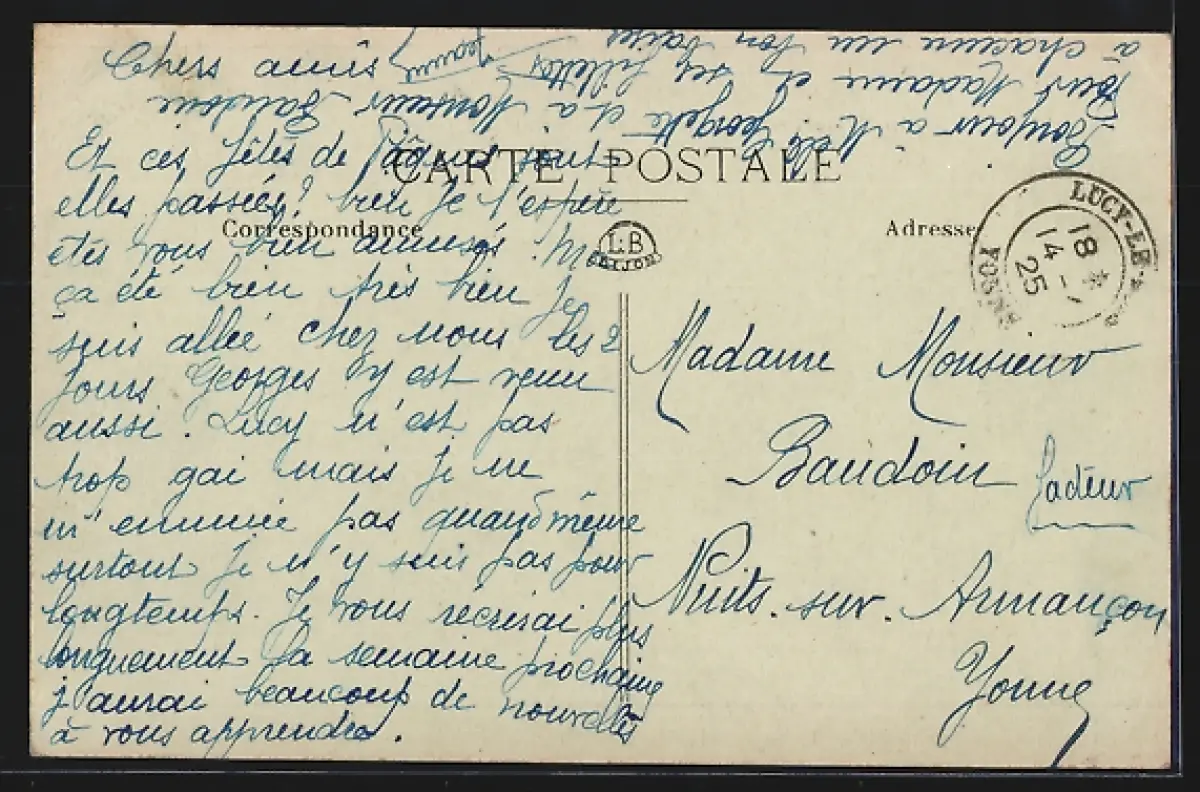 Chers amis
Et ces fêtes de Pâques sont
elles passées? bien je l'espère
êtes vous bien amusés. Moi
ça été bien très bien je
suis allée chez nous les 2
jours Georges y est venu
aussi. Lucy n'est pas
trop gai mais je ne
m'ennuie pas quand même
surtout je n'y suis pas pour
longtemps. Je vous récrirai plus
longuement la semaine prochaine
j'aurai beaucoup de nouvelles
à vous apprendre.
Bonjour à Melle Georgette et à Monsieur
Pour Madame et ses fillettes
à chacune un bon baiser
Jeanne
CARTE POSTALE
Correspondance
L.B
DIJON
Adresse
LUCY-LE-
18 *
14 -
25
YONNE
Madame Monsieur
Baudoin facteur
Nuits. sur. Armançon
Yonne